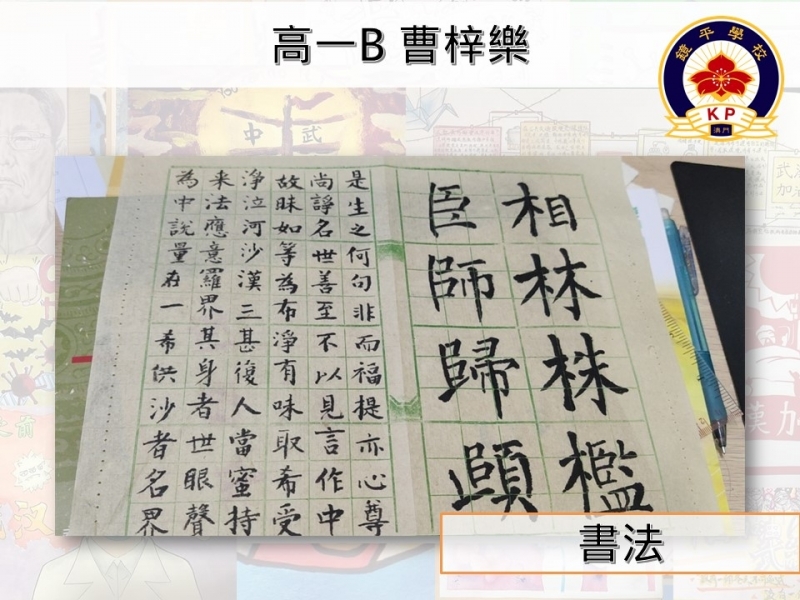 高一B 曹梓樂
鏡平學校
KP
澳門
相林株檻
臣師歸顕
是生之何句非而福提亦心尊
尚諍名世善至不以見言作中
故昧如等為布淨有味取希受
淨泣河沙漠三甚復人當蜜持
来法應意羅界其身者世眼聲
為中說量在一希供沙者名界
書法